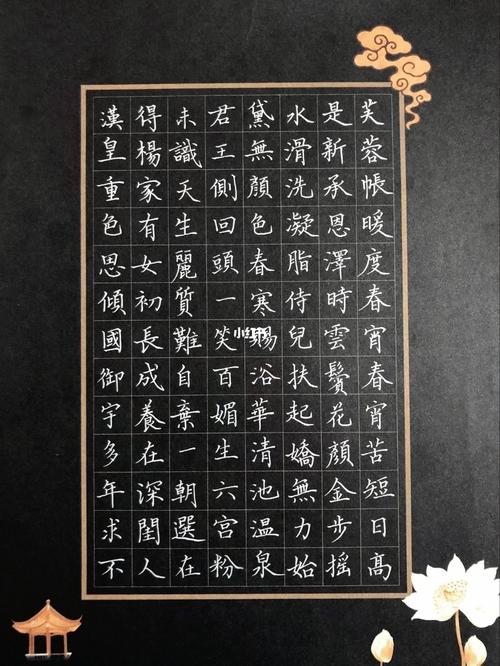 漢皇重色思傾國御宇多年求不
得楊家有女初長成養在深閨人
未識天生麗質難自棄一朝選在
君王側回頭一笑百媚生六宮粉
黛無顏色春寒賜浴華清池温泉
水滑洗凝脂侍兒扶起嬌無力始
是新承恩澤時雲鬢花顏金步搖
芙蓉帳暖度春宵春宵苦短日高
小红书